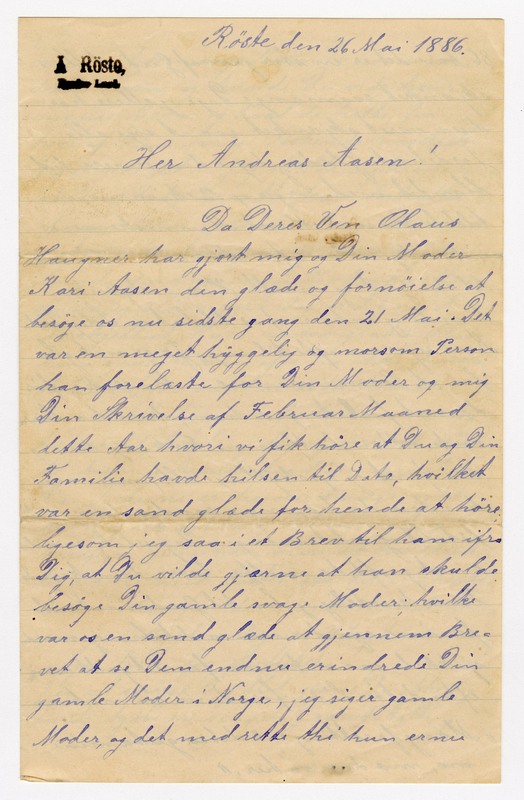 Röste den 26 Mai 1886.
A Röste,
Land.
Her Andreas Aasen!
Da Deres Ven Olaus
Haugner har gjort mig og Din Moder
Kari Aasen den glæde og fornöielse at
besöge os nu sidste gang den 21 Mai. Det
var en meget hyggelig og morsom Person
han forelæste for Din Moder og mig
Din Skrivelse af Februar Maaned
dette Aar hvori vi fik höre at Du og Din
Familie havde hilsen til Dito, hvilket
var en sand glæde for hende at höre,
ligesom jeg saa i et Brev til ham ifra
Dig, at Du vilde gjærne at han skulde
besöge Din gamle svage Moder; hvilke
var os en sand glæde at gjennem Bre-
vet at se Dem endnu erindrede Din
gamle Moder i Norge, jeg siger gamle
Moder, og det med rette thi hun er nu